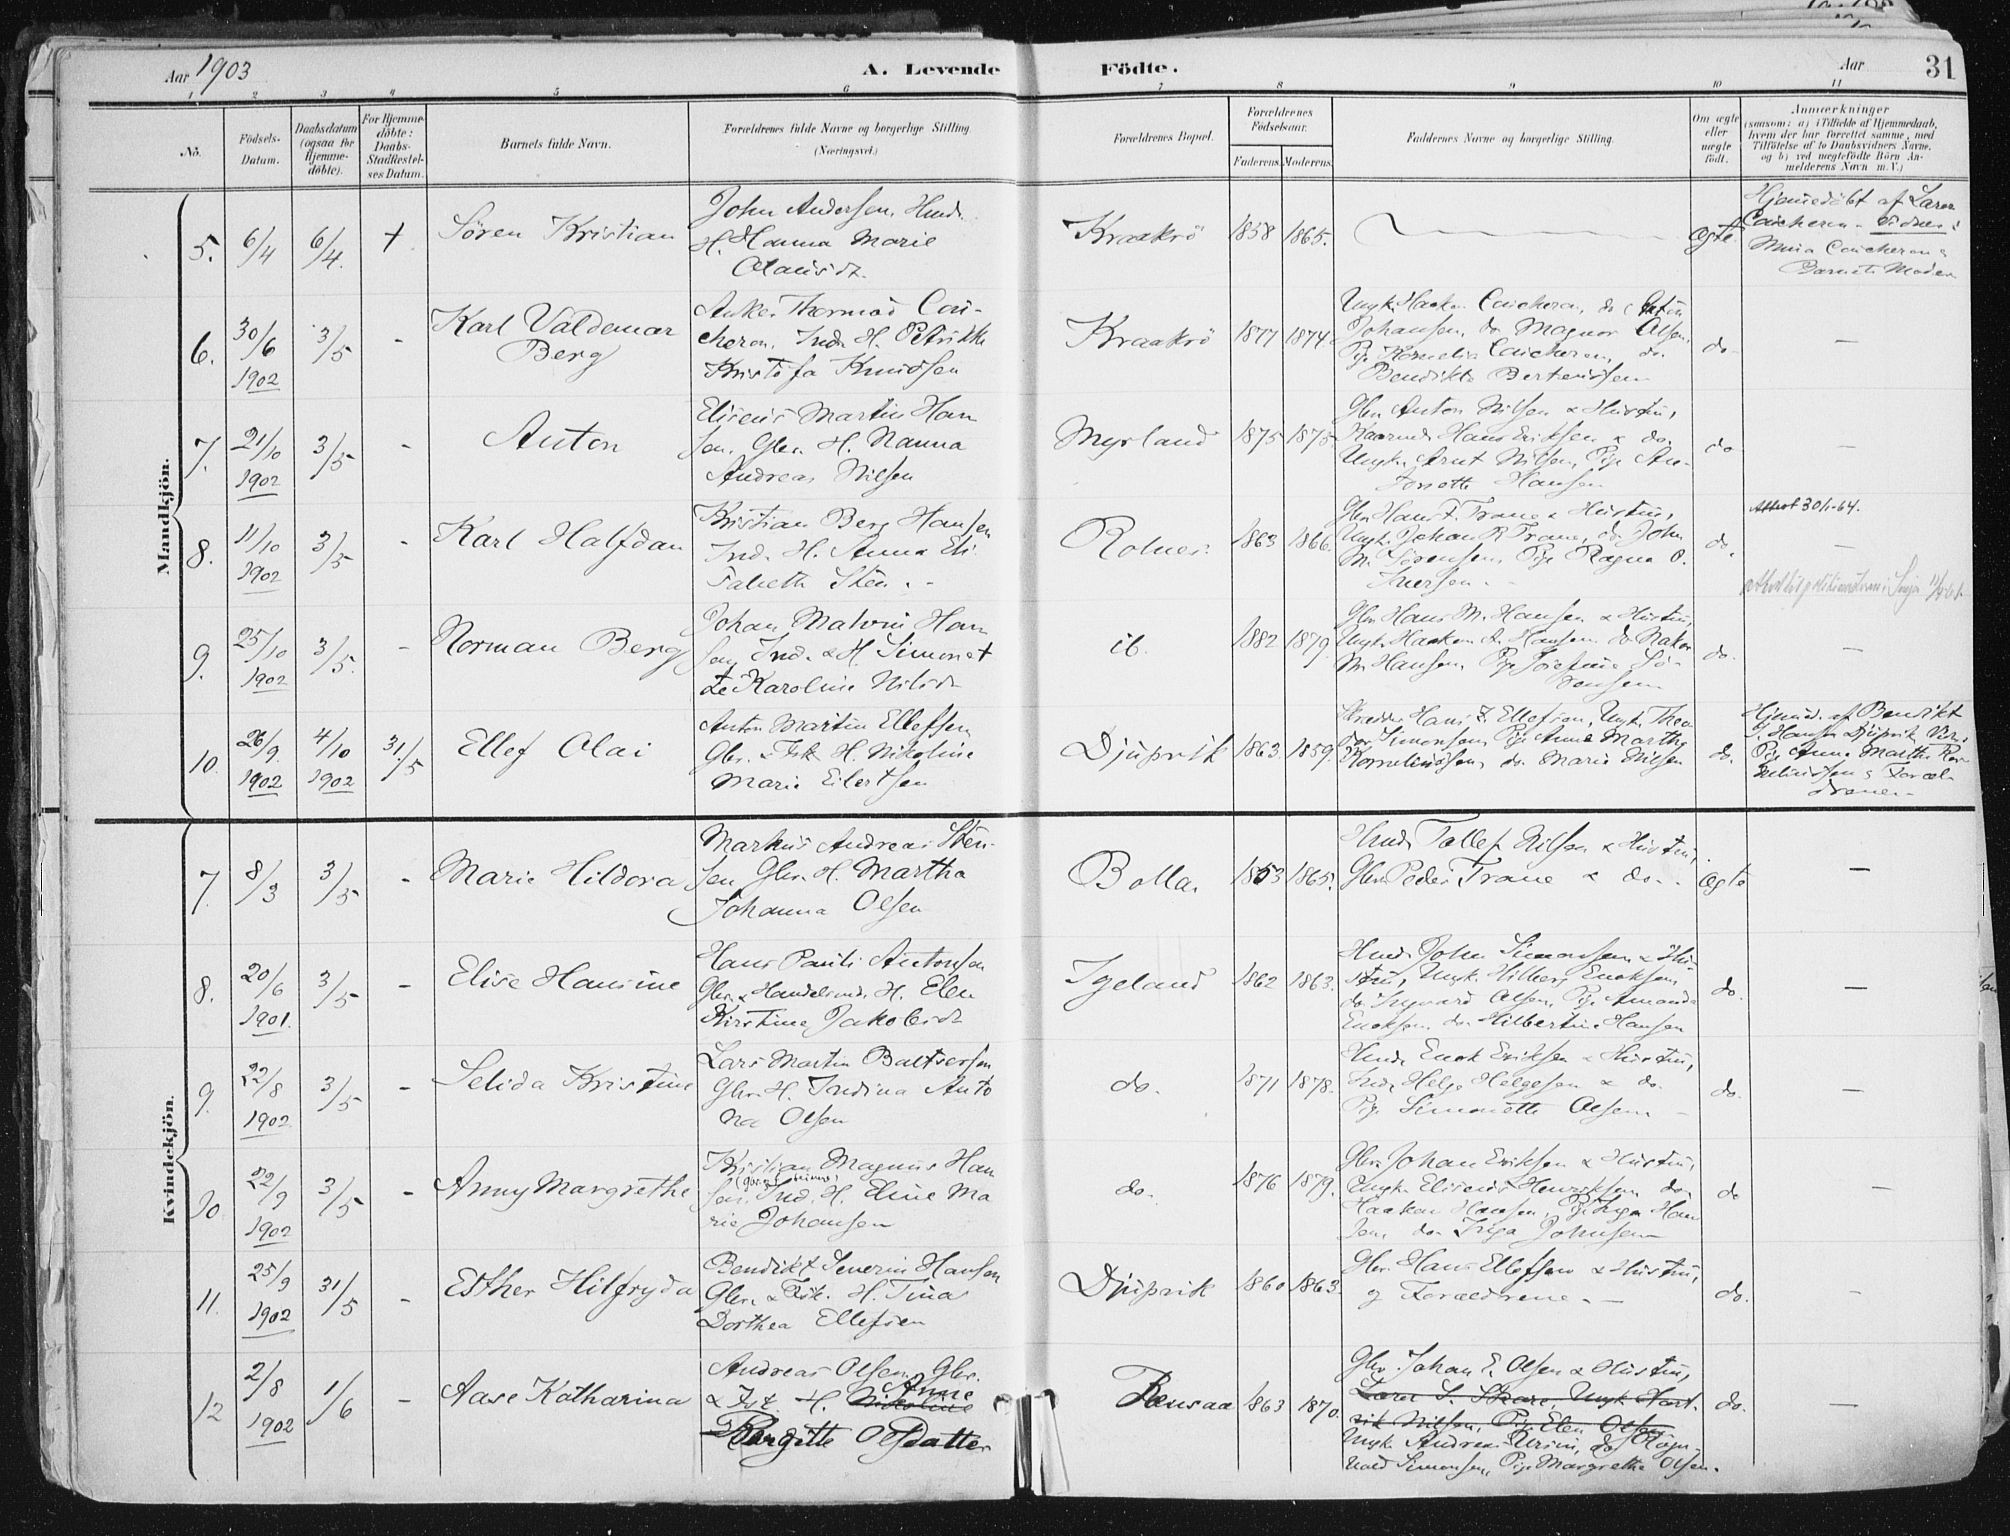 Aar 1903
A. Levende Födte.
Aar
31
1 2 3 4 5 6 7 8 9 10 11
No.
Födsels-
Datum.
Daabsdatum
(ogsaa for
Hjemme-
döbte).
For Hjemme-
döbte:
Daabs-
Stadfæstel-
ses Datum.
Barnets fulde Navn.
Forældrenes fulde Navne og borgerlige Stilling
(Næringsvei.)
Forældrenes Bopæl.
Forældrenes
Födselsaar.
Faderens.
Moderens.
Faddernes Navne og borgerlige Stilling.
Om ægte
eller
uægte
födt.
Anmærkninger
(saasom: a) i Tilfælde af Hjemmedaab,
hvem der har forrettet samme, med
Tilföielse af to Daabsvidners Navne,
og b) ved uægtefödte Börn An-
melderens Navn m. V.)
Mandkjön.
5. 6/4 6/4. + Sören Kristian
John Andersen, Hmd.
H. Hanna Marie
Olausdt.
Kraakrö 1858 1865. ægte.
Hjemedöbt af Larer
Caucheron. Vidner:
Mina Caucheron &
Barnets Moder
6. 30/6 1902 3/5 - Karl Valdemar
Berg
Anker Thormod Cau-
cheron, Ind. H. Petrikke
Kristofa Knudsen
Kraakrö 1877 1874.
Ungk. Haakon Caucheron, do
Johansen, do Magnor Olsen,
Pige Kornelia Caucheron, do.
Bendikte Berteussen
do. -
7. 21/10 1902 3/5 - Anton
Eliseus Martin Han
sen, Gbr. H. Nanna
Andreas Nilsen
Myrland 1875 1875
Gbr. Anton Nilsen & Hustru,
Kaarmd. Hans Eriksen & do.
Ungk. Arnt Nilsen, Pige An-
tonette Hansen
do -
8. 11/10 1902 3/5 - Karl Halfdan
Kristian Berg Hansen
Ind. H. Anna Eli-
sabeth Sten. -
Rolnes. 1863 1866.
Gbr. Hans F. Trane & Hustru,
Ungk. Johan R Trane, do John
M. Sörensen, Pige Ragna O.
Iversen. -
do. -
Attest 30/1-64.
9. 25/10 1902 3/5. - Norman Berg
Johan Malvin Han
sen Ind. & H. Simonet
te Karoline Nilsdt
ib. 1882 1879.
Gbr. Hans M. Hansen & Hustru,
Ungk. Haakon A. Hansen, do Haakon
M. Hansen, Pige Josefine Sö-
rensen
do. -
10. 26/9 1902 4/10 1902 31/5 Ellef Olai
Anton Martin Ellefsen
Gbr. & Fisk. H. Nikoline
Marie Eilertsen
Djupvik 1863. 1859.
Skredder Hans E. Ellefsen, Ungk. Theo
dor Simonsen, Pige Anne Marthe
Korneliussen, do. Marie Nilsen
do.
Hjemd. af Benedikt
S. Hansen Djupvik Vidn:
Pige Anne Marthe Kor
neliussen & Foræl-
drene. -
Kvindekjön.
7. 8/3 3/5 - Marie Hildora
Markus Andreas Sten-
sen Gbr. H. Martha
Johanna Olsen
Bolla. 1853 1865.
Hmd. Tollef Nilsen & Hustru,
Gbr. Peder Trane & do. -
ægte -
8. 20/6 1901. 3/5 - Elise Hansine
Hans Pauli Antonsen
Gbr. & Handelsmd. H. Elen
Kirstine Jakobsdt
Igeland 1862 1863.
Hmd. John Simonsen & Hu-
stru, Ungk. Hilberg Enoksen,
do. Ingvard Olsen, Pige Amanda
Enoksen, do Hilbertine Hansen
do. -
9. 22/8 1902 3/5 - Selida Kristine
Lars Martin Baltsersen,
Gbr. H. Indina Anto
na Olsen
do. 1871 1878.
Hmd. Enok Eriksen & Hustru,
Ind. Helge Helgesen & do.
Pige Simonette Olsen -
do. -
10. 22/9 1902 3/5 - Anny Margrethe
Kristian Magnus Han
sen, Ind. H. Eline Ma
rie Johansen
do. 1876 1879.
Gbr. Johan Eriksen & Hustru,
Ungk. Eliseus Henriksen, do.
Haakon Hansen, Pige Inga Han
sen, do Inga Johnsen
do -
11. 25/9 1902 31/5 - Esther Hilfryda
Bendikt Severin Hansen
Gbr. & Fisk. H. Tina
Dorthea Ellefsen
Djupvik 1860 1863.
Gbr. Hans Ellefsen & Hustru,
og Forældrene. -
do. -
12 2/8 1902 1/6 - Aase Katharina
Andreas Olsen, Gbr.
Anne
& Fisk. H. Nikoline
Birgitte Olsdatter
Rensaa 1863 1870.
Gbr. Johan E. Olsen & Hustru,
Larer S. Skare, Ungk. Hart-
vik Nilsen, Pige Elen Olsen
Ungk. Andreas Ursin, do Rögn-
vald Simonsen, Pige Margrethe Olsen.
do. -